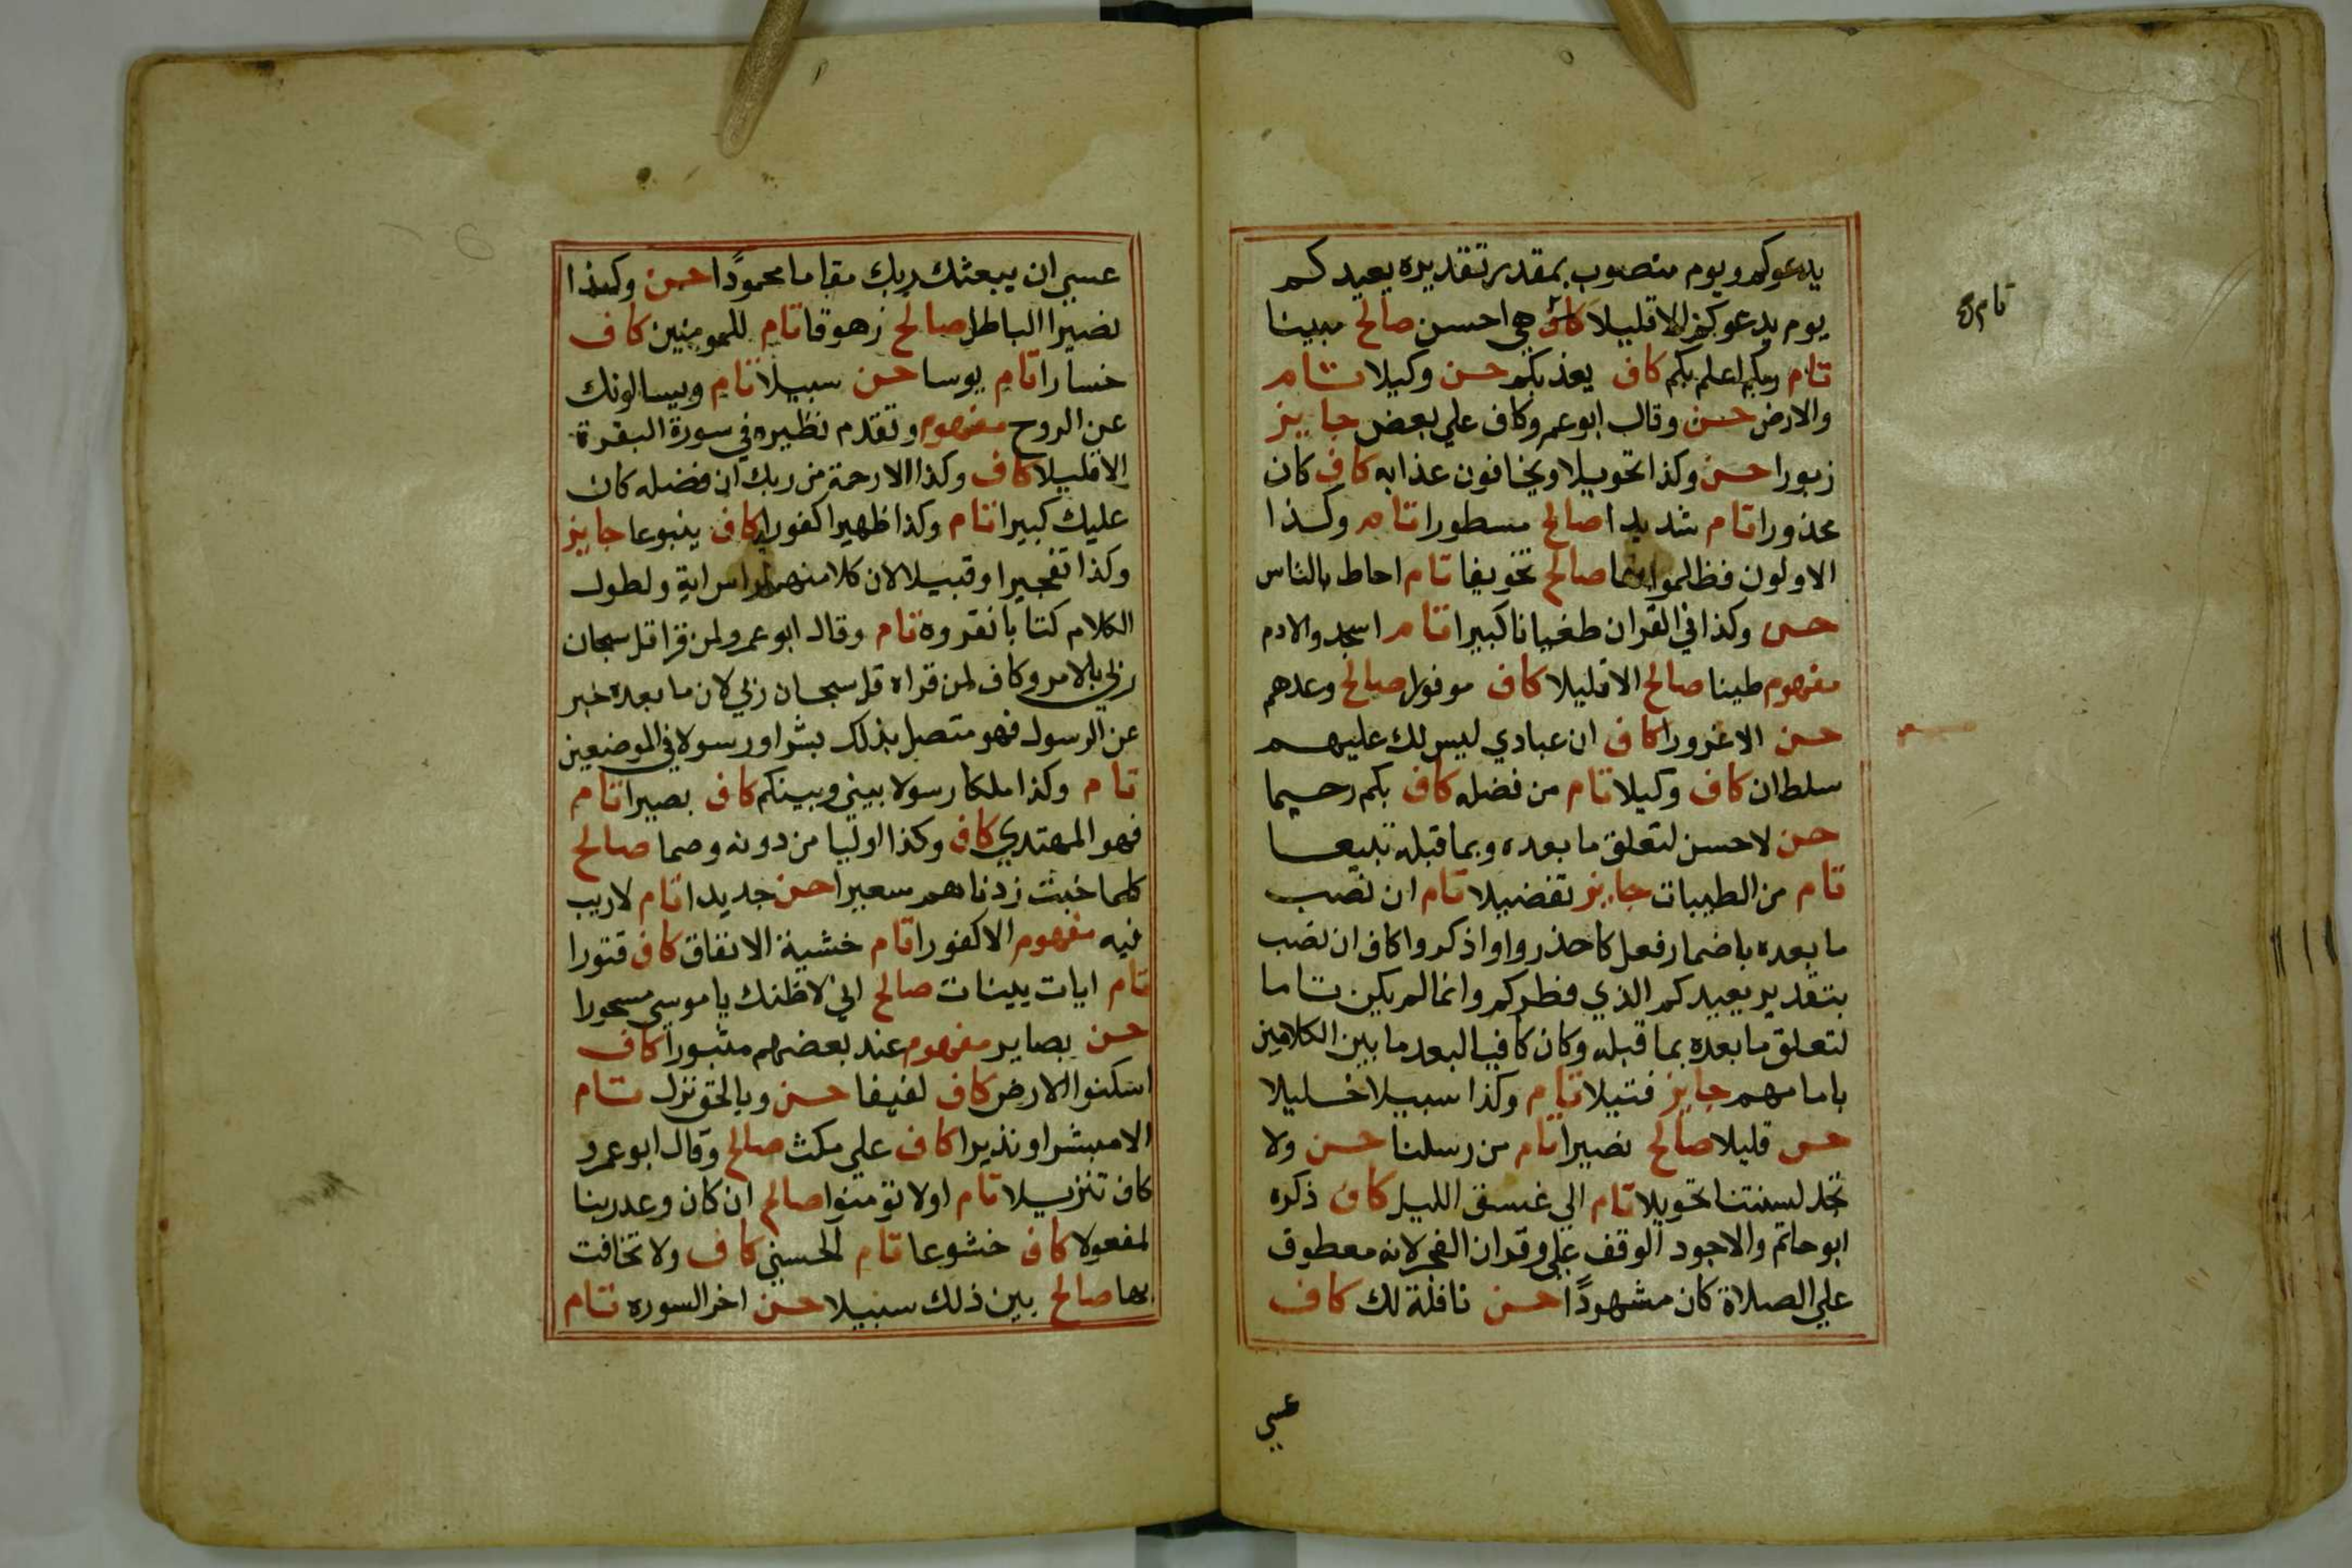 يدعوكم ويوم منصوب بمقدر تقديره يعيدكم
يوم يدعوكم الا قليلا هي احسن صالح مبينا
تام ربكم اعلم بكم كاف يعذبكم حسن وكيلا تام
والارض حسن وقال ابو عمرو كاف علي بعض جايز
زبورا حسن وكذا تحويلا ويخافون عذابه كاف كان
محذورا تام شديدا صالح مسطورا تام وكذا
الاولون فظلموا بها صالح تخويفا تام احاط بالناس
حسن وكذا في القران طغيانا كبيرا تام اسجدوا لادم
مفهوم طينا صالح الا قليلا كاف موفورا صالح وعدهم
حسن الا غرورا كاف ان عبادي ليس لك عليهم
سلطان كاف وكيلا تام من فضله كاف بكم رحيما
حسن لا حسن لتعلق ما بعده وبما قبله تبيعا
تام من الطيبات جايز تفضيلا تام ان نصب
ما بعده باضمار فعل كاحذروا واذكروا كاف ان نصب
بتقدير يعيدكم الذي فطركم وانما لم يكن تاما
لتعلق ما بعده بما قبله وكان كافيا لبعد ما بين الكلامين
بامامهم جايز فتيلا تام وكذا سبيلا خليلا
حسن قليلا صالح نصيرا تام من رسلنا حسن ولا
تجد لسنتنا تحويلا تام الي غسق الليل كاف ذكره
ابو حاتم والاجود الوقف علي وقران الفجر لانه معطوف
علي الصلاة كان مشهودًا حسن نافلة لك كاف
عسي
تام
عسي ان يبعثك ربك مقاما محمودًا حسن وكذا
نصيرا الباطل صالح زهوقا تام للمومنين كاف
خسارا تام يوسا حسن سبيلا تام ويسالونك
عن الروح مفهوم وتقدم نظيره في سورة البقرة
الا قليلا كاف وكذا الا رحمة من ربك ان فضله كان
عليك كبيرا تام وكذا ظهيرا كفورا كاف ينبوعا جايز
وكذا تفجيرا او قبيلا لان كلا منهم راس اية ولطول
الكلام كتابا نقروه تام وقال ابو عمرو لمن قرا قل سبحان
ربي بالامر وكاف لمن قراه قل سبحان ربي لان ما بعده خبر
عن الرسول فهو متصل بذلك بشرا ورسولا في الموضعين
تام وكذا ملكا رسولا بيني وبينكم كاف بصيرا تام
فهو المهتدي كاف وكذا اوليا من دونه وصما صالح
كلما خبت زدناهم سعيرا حسن جديدا تام لا ريب
فيه مفهوم الا كفورا تام خشية الانفاق كاف قتورا
تام ايات بينات صالح اني لاظنك يا موسي مسحورا
حسن بصاير مفهوم عند بعضهم مثبورا كاف
اسكنوا الارض كاف لفيفا حسن وبالحق نزل تام
الا مبشرا ونذيرا كاف علي مكث صالح وقال ابو عمرو
كاف تنزيلا تام اولا تومنوا صالح ان كان وعد ربنا
لمفعولا كاف خشوعا تام الحسني كاف ولا تخافت
بها صالح بين ذلك سبيلا حسن اخر السوره تام